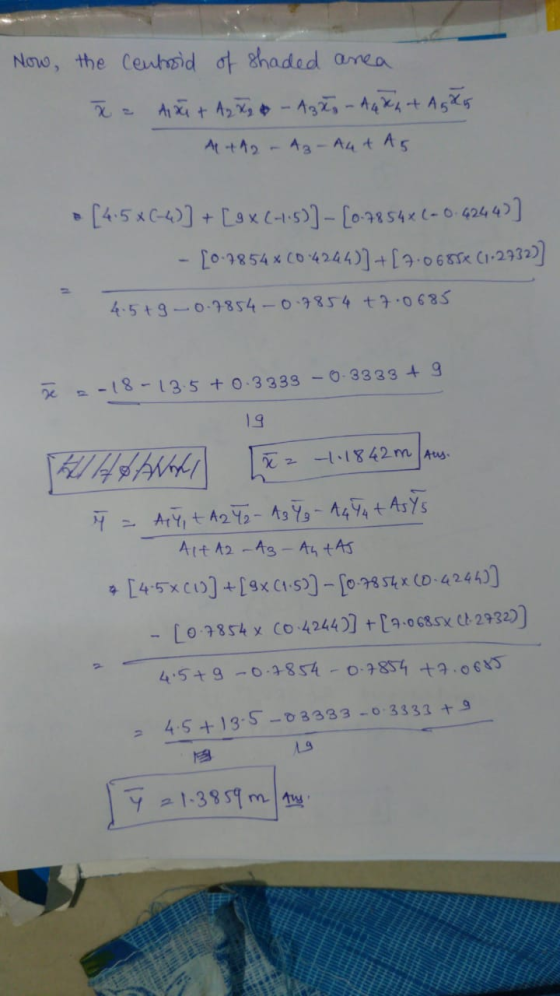 Now, the Centroid of shaded area
x̄ = A1x̄1 + A2x̄2 - A3x̄3 - A4x̄4 + A5x̄5
A1 + A2 - A3 - A4 + A5
[4.5×(-4)] + [9×(-1.5)] - [0.7854×(-0.4244)]
- [0.7854×(0.4244)] + [7.0685×(1.2732)]
=
4.5+9-0.7854-0.7854+7.0685
x̄ = -18-13.5+0.3333-0.3333+9
19
x̄ = -1.1842m Ans.
Ȳ = A1Ȳ1 + A2Ȳ2 - A3Ȳ3 - A4Ȳ4 + A5Ȳ5
A1+A2-A3-A4+A5
[4.5×(1)] + [9×(1.5)] - [0.7854×(0.4244)]
- [0.7854×(0.4244)] + [7.0685×(1.2732)]
=
4.5+9-0.7854-0.7854+7.0685
= 4.5+13.5-03333-0.3333+9
19
Ȳ = 1.3859m Ans.